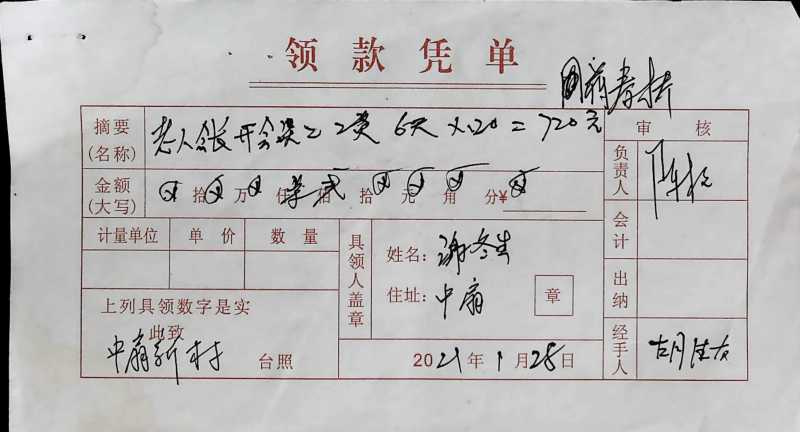 领款凭单
摘要
(名称)
老人会长开会 6天×120=720元
审核
负责人
金额
(大写)
拾 万 仟 柒 佰 贰 拾 元 角 分¥
会计
计量单位 单价 数量
具领人盖章
姓名:谢冬生
住址:中扇
章
出纳
上列具领数字是实
此致
中扇新村 台照
2021年1月28日
经手人
胡佳友